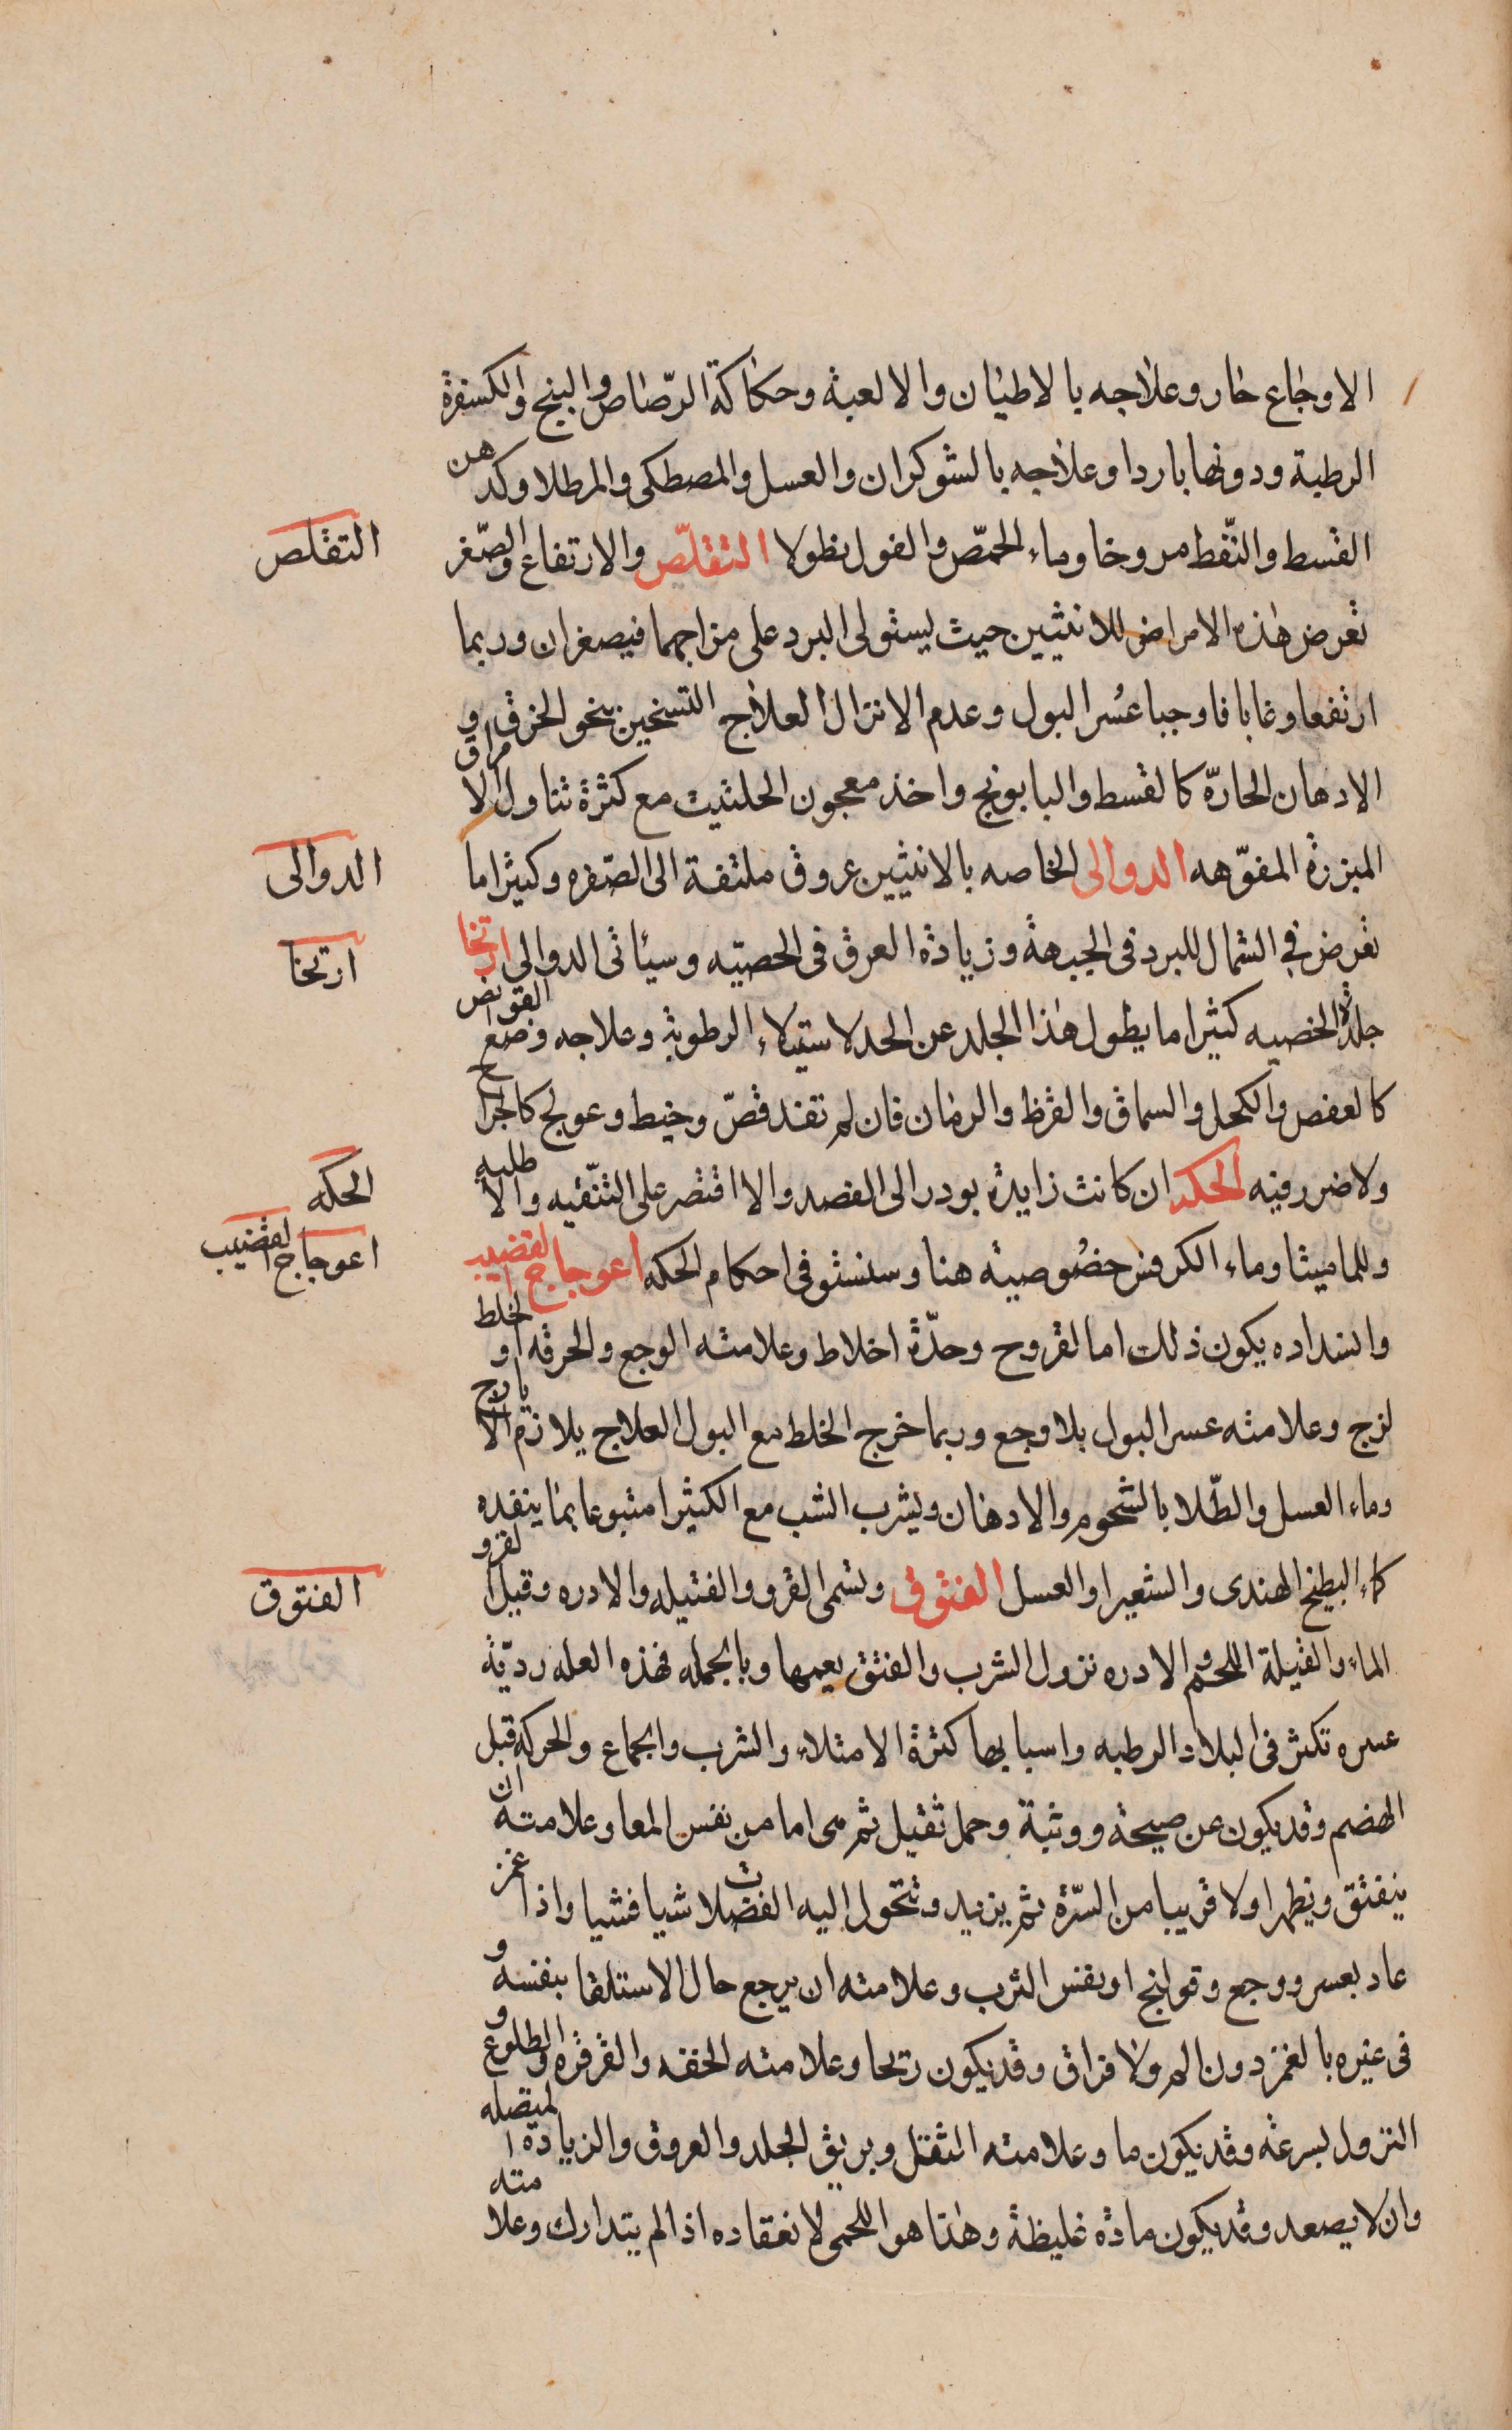 الاوجاع حار وعلاجه بالاطيان والالعبة وحكاكة الرّصاص والبنج والكسفرة
الرطبة ودونها باردا وعلاجه بالشوكران والعسل والمصطكى والمر طلا وكدهن
القسط والنّفط مروخا وماء الحمّص والفول نطولا التقلّص والارتفاع والصّغر
التقلص
تعرض هذه الامراض للانثيين حيث يستولى البرد على مزاجهما فيصغران وربما
ارتفعا وغابا فاوجبا عُسر البول وعدم الانزال العلاج التسخين بنحو الخرق و
الادهان الحارّه كالقسط والبابونج واخذ معجون الحلتيت مع كثرة تناول الامراق
المبزرة المفوّهه الدوالى الخاصه بالانثيين عروق ملتفة الى الصّفره وكثيرا ما
الدوالى
تعرض في الشمال للبرد فى الجبهة وزيادة العرق فى الحصتيه وسيأتى الدوالى ارتخا
ارتخا
جلدة الخصيه كثيرا ما يطول هذا الجلد عن الحد لاستيلاء الرطوبة وعلاجه وضع القوابض
كالعفص والكحل والسماق والقرظ والرمان فان لم تفد قصّ وخيط وعولج كالجراح
ولا ضرر فيه الحكه ان كانت زايدة بودر الى الفصد والا اقتصر على التنّقيه والاطليه
الحكه
وللماميثا وماء الكرفس خصُوصية هنا وسنستوفى احكام الحكه اعوجاج القضيب
اعوجاج القضيب
وانسداده يكون ذلك اما لقروح وحدّة اخلاط وعلامته الوجع والحرقه او لخلط
لزج وعلامته عسر البول بلا وجع وربما خرج الخلط مع البول العلاج يلازم الايارج
وماء العسل والطّلا بالشحوم والادهان ويشرب الشب مع الكثيرا متبوعا بما ينفده
كماء البطيخ الهندى والشعير او العسل الفتوق وتسمى القرو والفتيله والادره وقيل القرو
الفتوق
الماء والفيلة اللحم والادره نزول الشرب والفتق يعمها وبالجمله فهذه العله رديّة
عسره تكثر فى البلاد الرطبه واسبابها كثرة الامتلاء والشرب والجماع والحركه قبل
الهضم وقد يكون عن صيحة ووثبة وحمل ثقيل ثم هى اما من نفس المعا وعلامته ان
ينفتق ويظهر اولا قريبا من السّرة ثم يزيد وتتحول اليه الفضلات شيا فشيا واذا غمز
عاد بعسر ووجع وقولنج او بفتق الثرب وعلامته ان يرجع حال الاستلقا بنفسه و
فى غيره بالغمز دون الم ولا قراق وقد يكون ريحا وعلامته الخفه والقرقره والطلوع و
النزول بسرعة وقد يكون ما وعلامته الثقل وبريق الجلد والعروق والزيادة المتصله
وان لا يصعد وقد يكون مادة غليظة وهذا هو اللحمى لانعقاده اذا لم يتدارك وعلامته